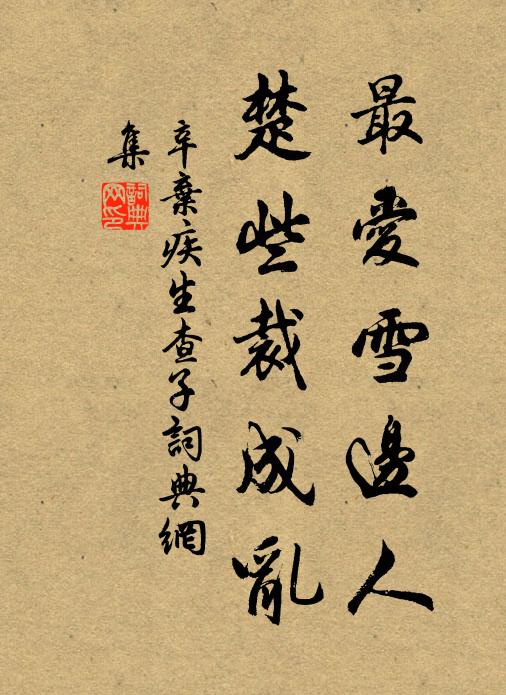 最愛雪邊人
楚些裁成亂
辛棄疾生查子詞典網
集
詞典網印